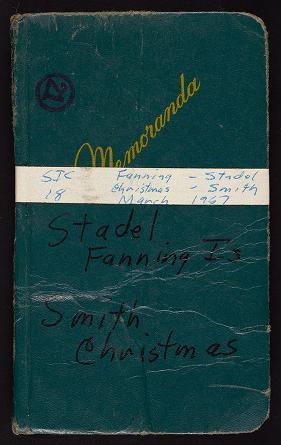 Memoranda
SJC Fanning - Stadel
18 Christmas - Smith
March 1967
Stadel
Fanning Is
Smith
Christmas